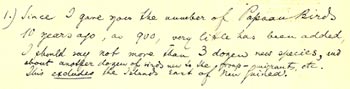 1.) Since I gave you the number of Papuan Birds
10 years ago, as 900, very little has been added,
I should say not more than 3 dozen new species, and
about another dozen of birds new to the group—migrants, etc.
This excludes the Islands east of New Guinea.